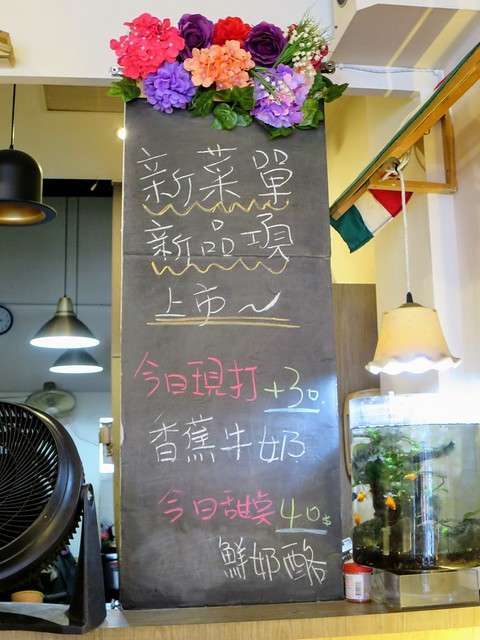 新菜單
新品項
上市~
今日現打 +30.
香蕉牛奶
今日甜點 40元
鮮奶酪